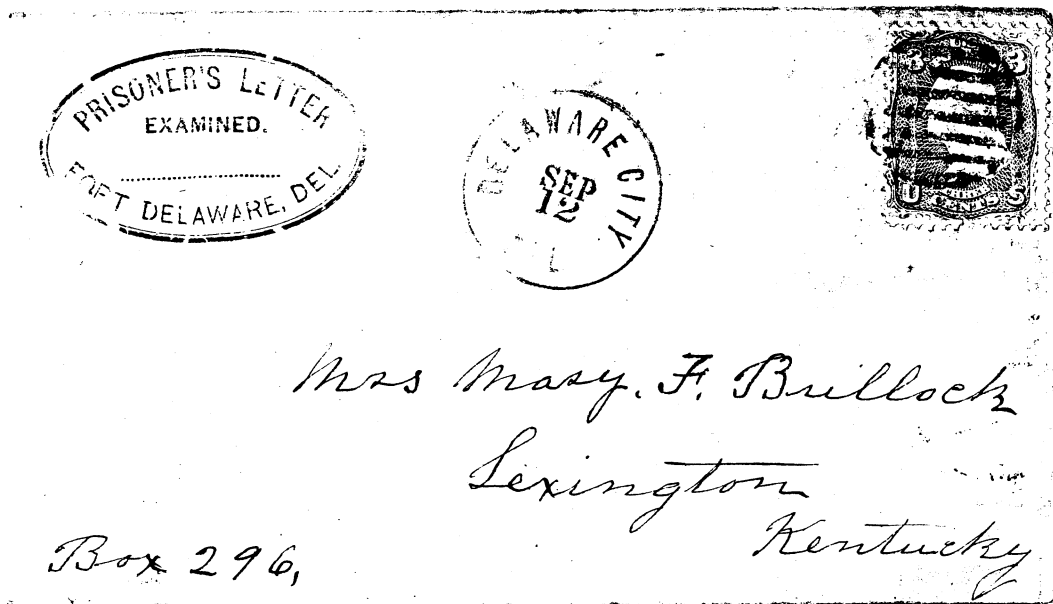 PRISONER'S LETTER
EXAMINED.
FORT DELAWARE, DEL.
DELAWARE CITY
SEP
12
3 3
U
Mrs Mary. F. Bullock
Lexington
Kentucky
Box 296,